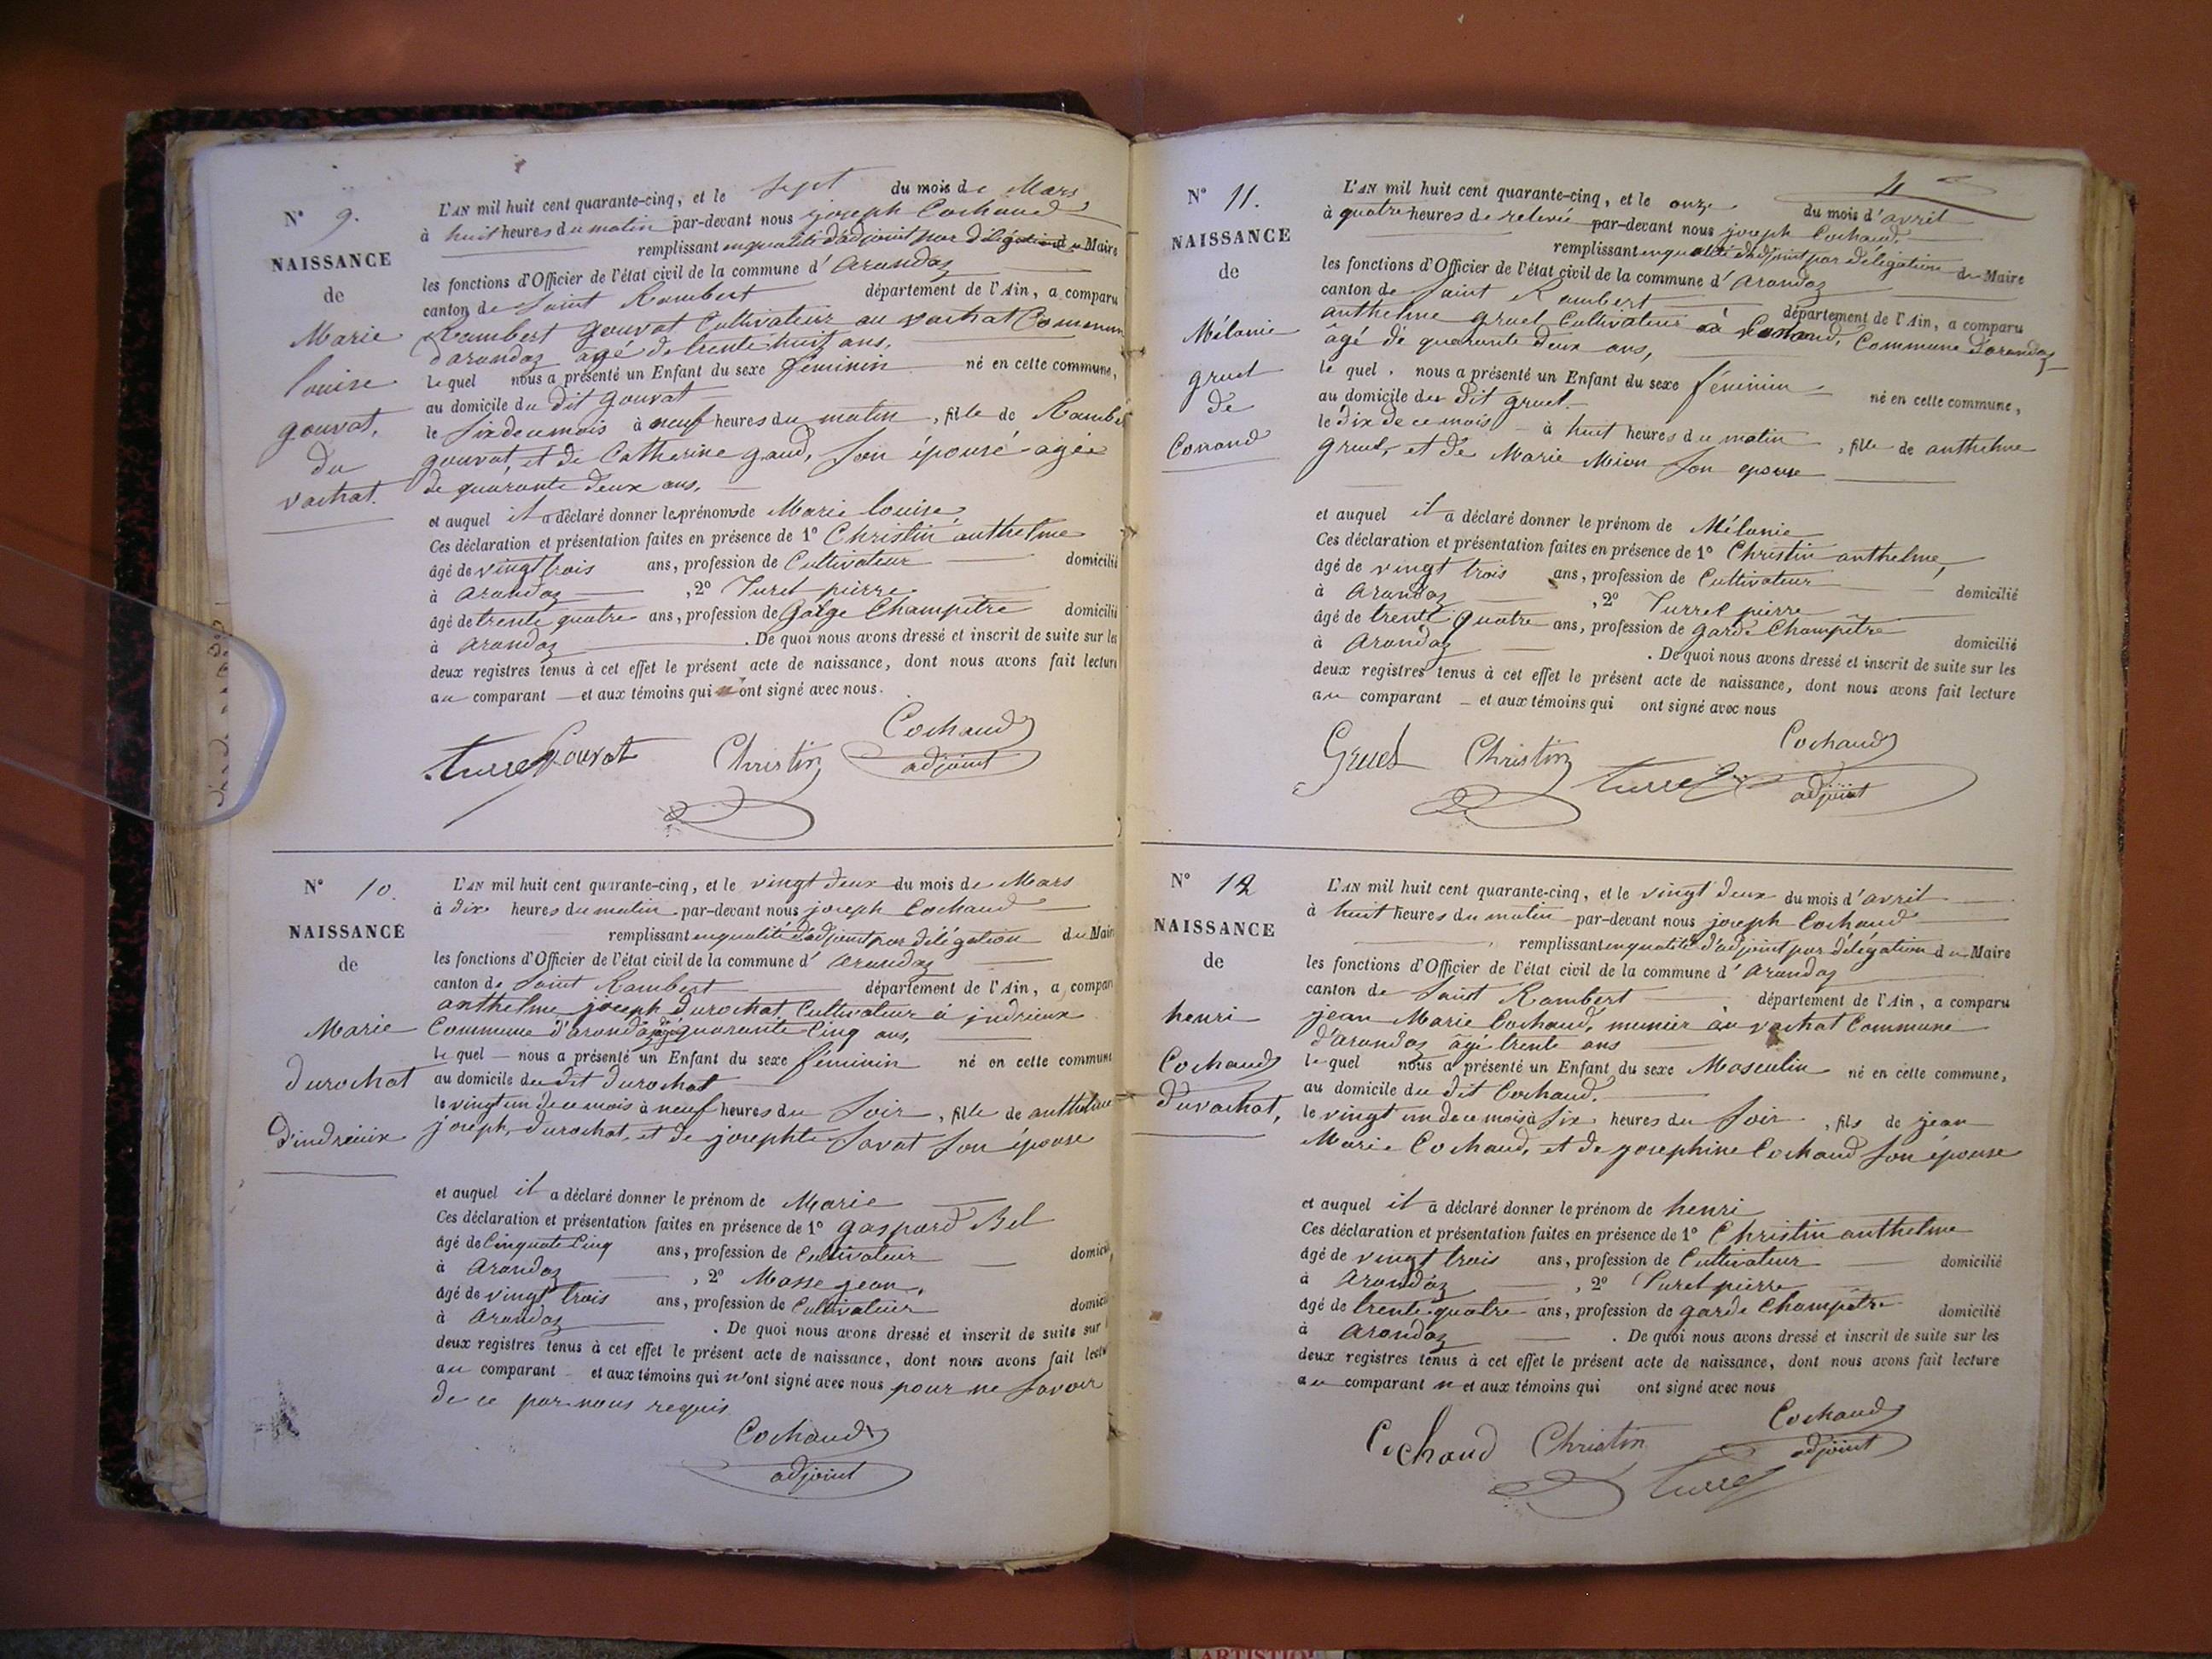 N° 9.
NAISSANCE
de
Marie
louise
gouvat,
du
vachat.
L'AN mil huit cent quarante-cinq, et le sept du mois de Mars
à huit heures du matin par-devant nous joseph Cochaud
remplissant en qualité d'adjoint par délégation du Maire
les fonctions d'Officier de l'état civil de la commune d'arandaz
canton de Saint Rambert département de l'Ain, a comparu
Rambert gouvat Cultivateur au vachat Commune
d'arandaz âgé de trente huit ans,
lequel nous a présenté un Enfant du sexe féminin né en cette commune,
au domicile du dit gouvat
le six de ce mois à neuf heures du matin, fille de Rambert
gouvat, et de Catherine gaud, son épouse agée
de quarante deux ans,
et auquel il a déclaré donner les prénoms de Marie louise
Ces déclaration et présentation faites en présence de 1° Christin anthelme
âgé de vingt trois ans, profession de Cultivateur domicilié
à arandaz, 2° Turel pierre
âgé de trente quatre ans, profession de Champêtre domicilié
à arandaz. De quoi nous avons dressé et inscrit de suite sur les
deux registres tenus à cet effet le présent acte de naissance, dont nous avons fait lecture
au comparant et aux témoins qui ont signé avec nous.
turrel Gouvat Christin Cochaud
adjoint
N° 10.
NAISSANCE
de
Marie
durochat
d'indrieux
L'AN mil huit cent quarante-cinq, et le vingt deux du mois de Mars
à dix heures du matin par-devant nous joseph Cochaud
remplissant en qualité d'adjoint par délégation du Maire
les fonctions d'Officier de l'état civil de la commune d'arandaz
canton de Saint Rambert département de l'Ain, a compar
anthelme joseph durochat Cultivateur à indrieux
Commune d'arandaz âgé de quarante Cinq ans,
lequel nous a présenté un Enfant du sexe féminin né en cette commune
au domicile du dit durochat
le vingt un de ce mois à neuf heures du Soir, fille de anthelme
joseph, durochat, et de josephte Savat son épouse
et auquel il a déclaré donner le prénom de Marie
Ces déclaration et présentation faites en présence de 1° gaspard Bel
âgé de Cinquate Cinq ans, profession de Cultivateur domicilié
à arandaz, 2° Masse jean,
âgé de vingt trois ans, profession de Cultivateur domicilié
à arandaz. De quoi nous avons dressé et inscrit de suite sur
deux registres tenus à cet effet le présent acte de naissance, dont nous avons fait lectu
au comparant et aux témoins qui n'ont signé avec nous pour ne savoir
de ce par nous requis
Cochaud
adjoint
4
N° 11.
NAISSANCE
de
Mélanie
gruel
de
Conand
L'AN mil huit cent quarante-cinq, et le onze du mois d'avril
à quatre heures de relevée par-devant nous joseph Cochaud,
remplissant en qualité d'adjoint par délégation du Maire
les fonctions d'Officier de l'état civil de la commune d'arandaz
canton de Saint Rambert département de l'Ain, a comparu
anthelme gruel Cultivateur à Conand, Commune d'arandaz
âgé de quarante deux ans,
lequel. nous a présenté un Enfant du sexe féminin né en cette commune,
au domicile du dit gruel.
le dix de ce mois à huit heures du matin, fille de anthelme
gruel, et de Marie Mion son epouse
et auquel il a déclaré donner le prénom de Mélanie
Ces déclaration et présentation faites en présence de 1° Christin anthelme,
âgé de vingt trois ans, profession de Cultivateur domicilié
à arandaz, 2° Turrel pierre
âgé de trente quatre ans, profession de garde Champêtre domicilié
à arandaz. De quoi nous avons dressé et inscrit de suite sur les
deux registres tenus à cet effet le présent acte de naissance, dont nous avons fait lecture
au comparant et aux témoins qui ont signé avec nous
Gruel Christin turrel Cochaud
adjoint
N° 12
NAISSANCE
de
henri
Cochaud
du vachat,
L'AN mil huit cent quarante-cinq, et le vingt deux du mois d'avril
à huit heures du matin par-devant nous joseph Cochaud
remplissant en qualité d'adjoint par délégation du Maire
les fonctions d'Officier de l'état civil de la commune d'arandaz
canton de Saint Rambert département de l'Ain, a comparu
jean Marie Cochaud, munier au vachat Commune
d'arandaz âgé trente ans
lequel nous a présenté un Enfant du sexe Masculin né en cette commune,
au domicile du dit Cochaud.
le vingt un de ce mois à six heures du Soir, fils de jean
Marie Cochaud, et de josephine Cochaud son épouse
et auquel il a déclaré donner le prénom de henri
Ces déclaration et présentation faites en présence de 1° Christin anthelme
âgé de vingt trois ans, profession de Cultivateur domicilié
à arandaz, 2° Turel pierre
âgé de trente quatre ans, profession de garde Champêtre domicilié
à arandaz. De quoi nous avons dressé et inscrit de suite sur les
deux registres tenus à cet effet le présent acte de naissance, dont nous avons fait lecture
au comparant et aux témoins qui ont signé avec nous
Cochaud Christin turrel Cochaud
adjoint